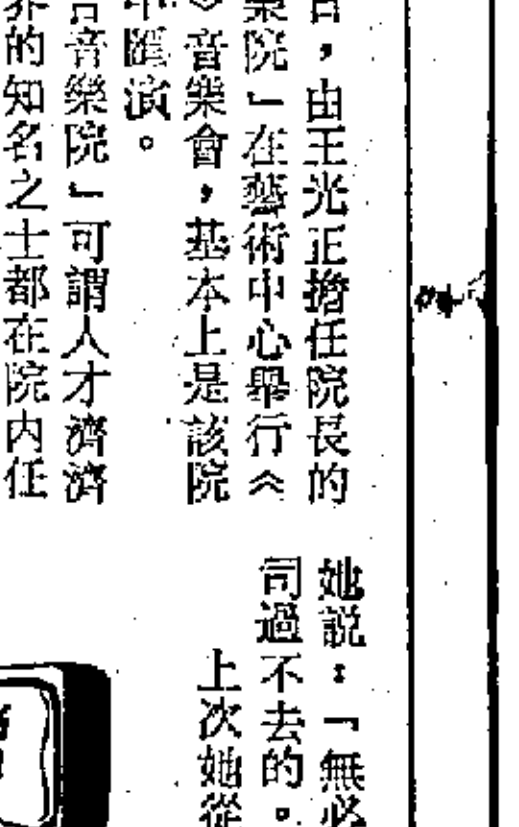 ，由王光正擔任院長的
樂院」在藝術中心舉行《
》音樂會，基本上是該院
匯演。
音樂院」可謂人才濟濟
界的知名之士都在院内任
她説：「無必
司過不去的。
上次她從